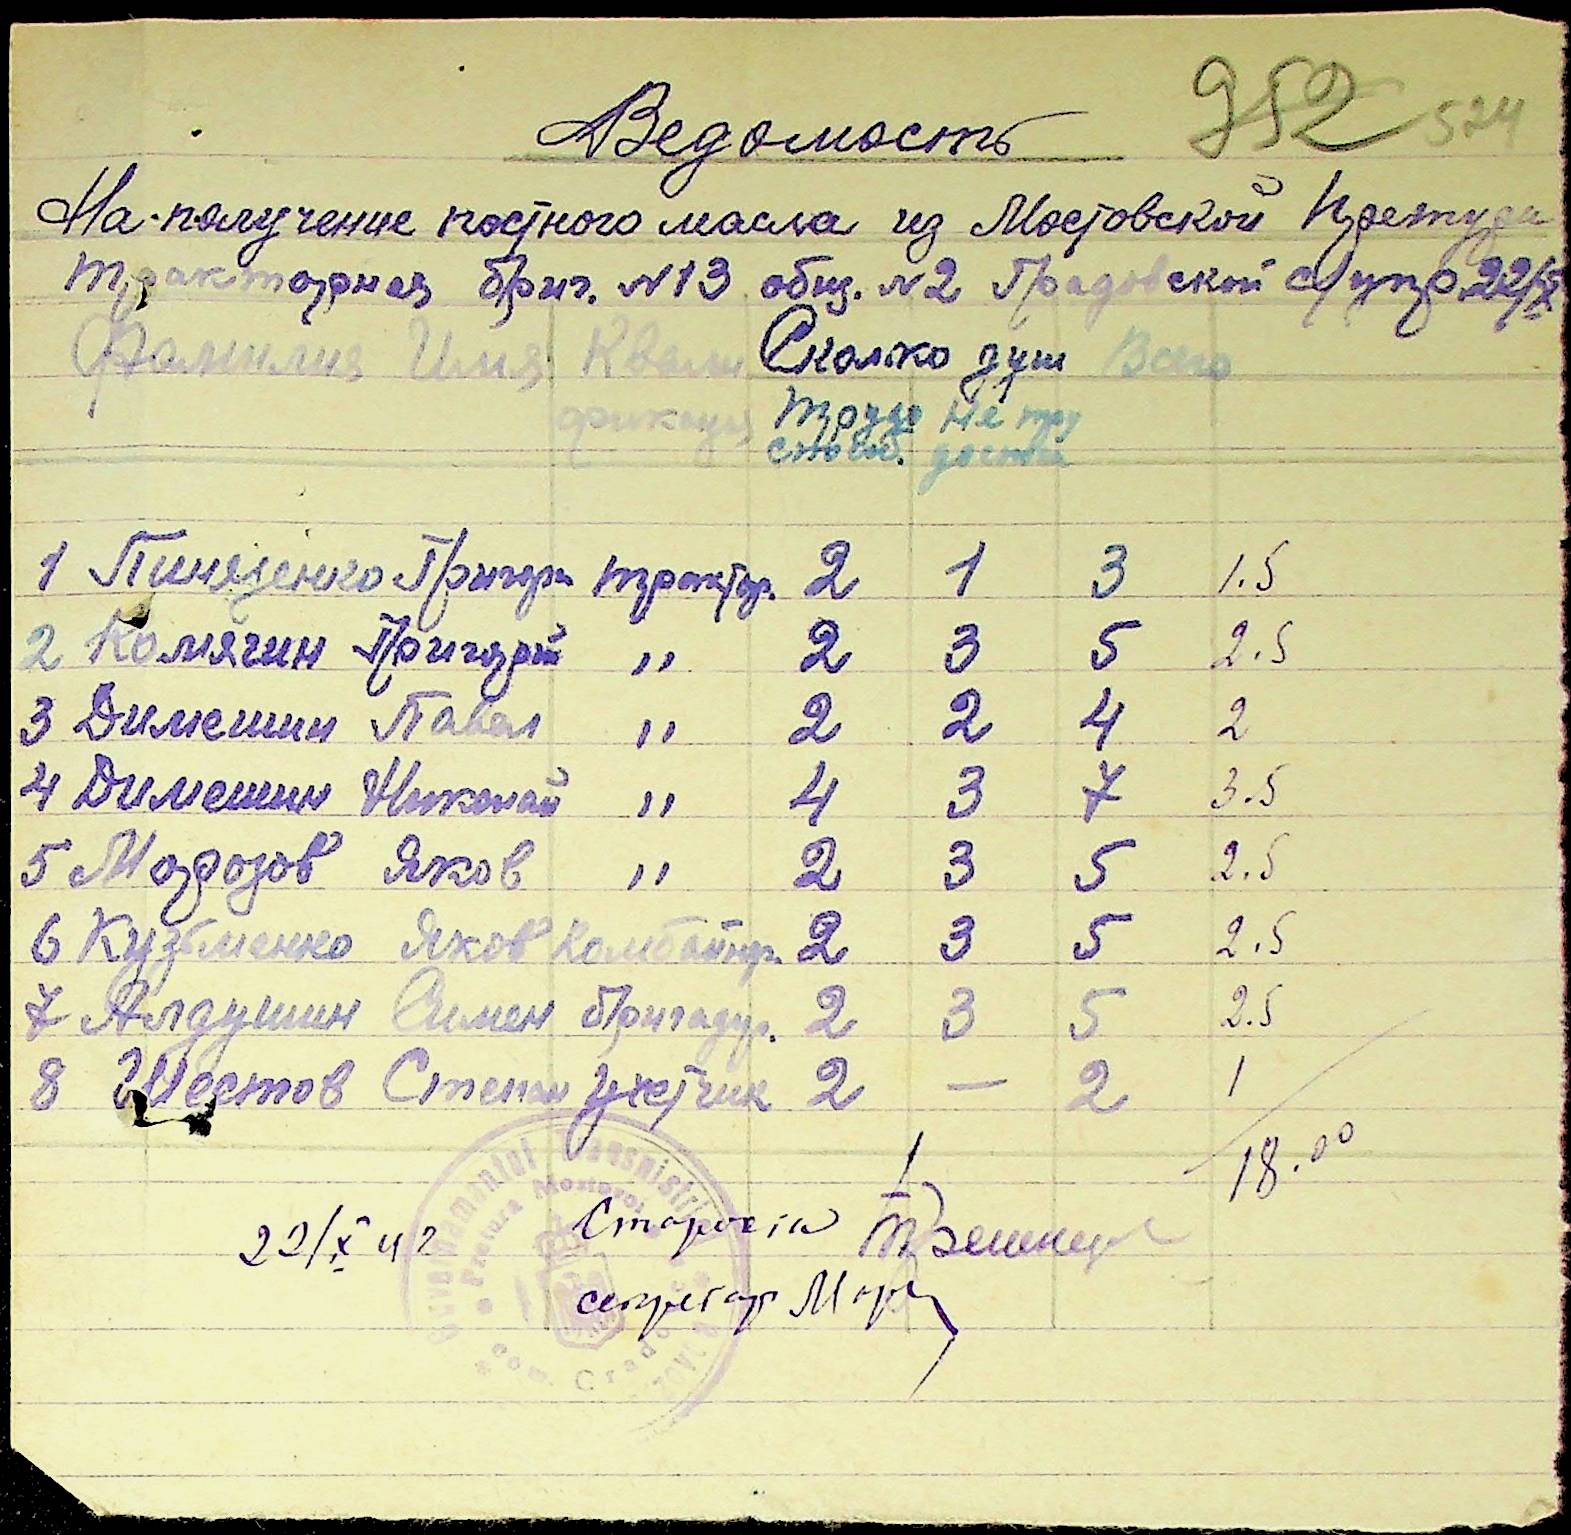 952 524
Ведомость
На получение постного масла из Мостовской Претуры
тракторная бриг. N13 общ. N2 Градовской с/упр. 22/X
Фамилия Имя Квали Сколко душ Всего
фикация Трудо Не тру
способ. доспос
1 Пинященко Григори трактор. 2 1 3 1.5
2 Комягин Григорий " 2 3 5 2.5
3 Димешин Павел " 2 2 4 2
4 Димешин Николай " 4 3 7 3.5
5 Морозов Яков " 2 3 5 2.5
6 Кузьменко Яков Комбайнер. 2 3 5 2.5
7 Алдушин Симен бригадир. 2 3 5 2.5
8 Шестов Степан Учетчик 2 — 2 1
18.00
22/X 42 Староста
секретар Мор
Guvernamantul Transnistri
Pretura Mostovoi
Com. Grado